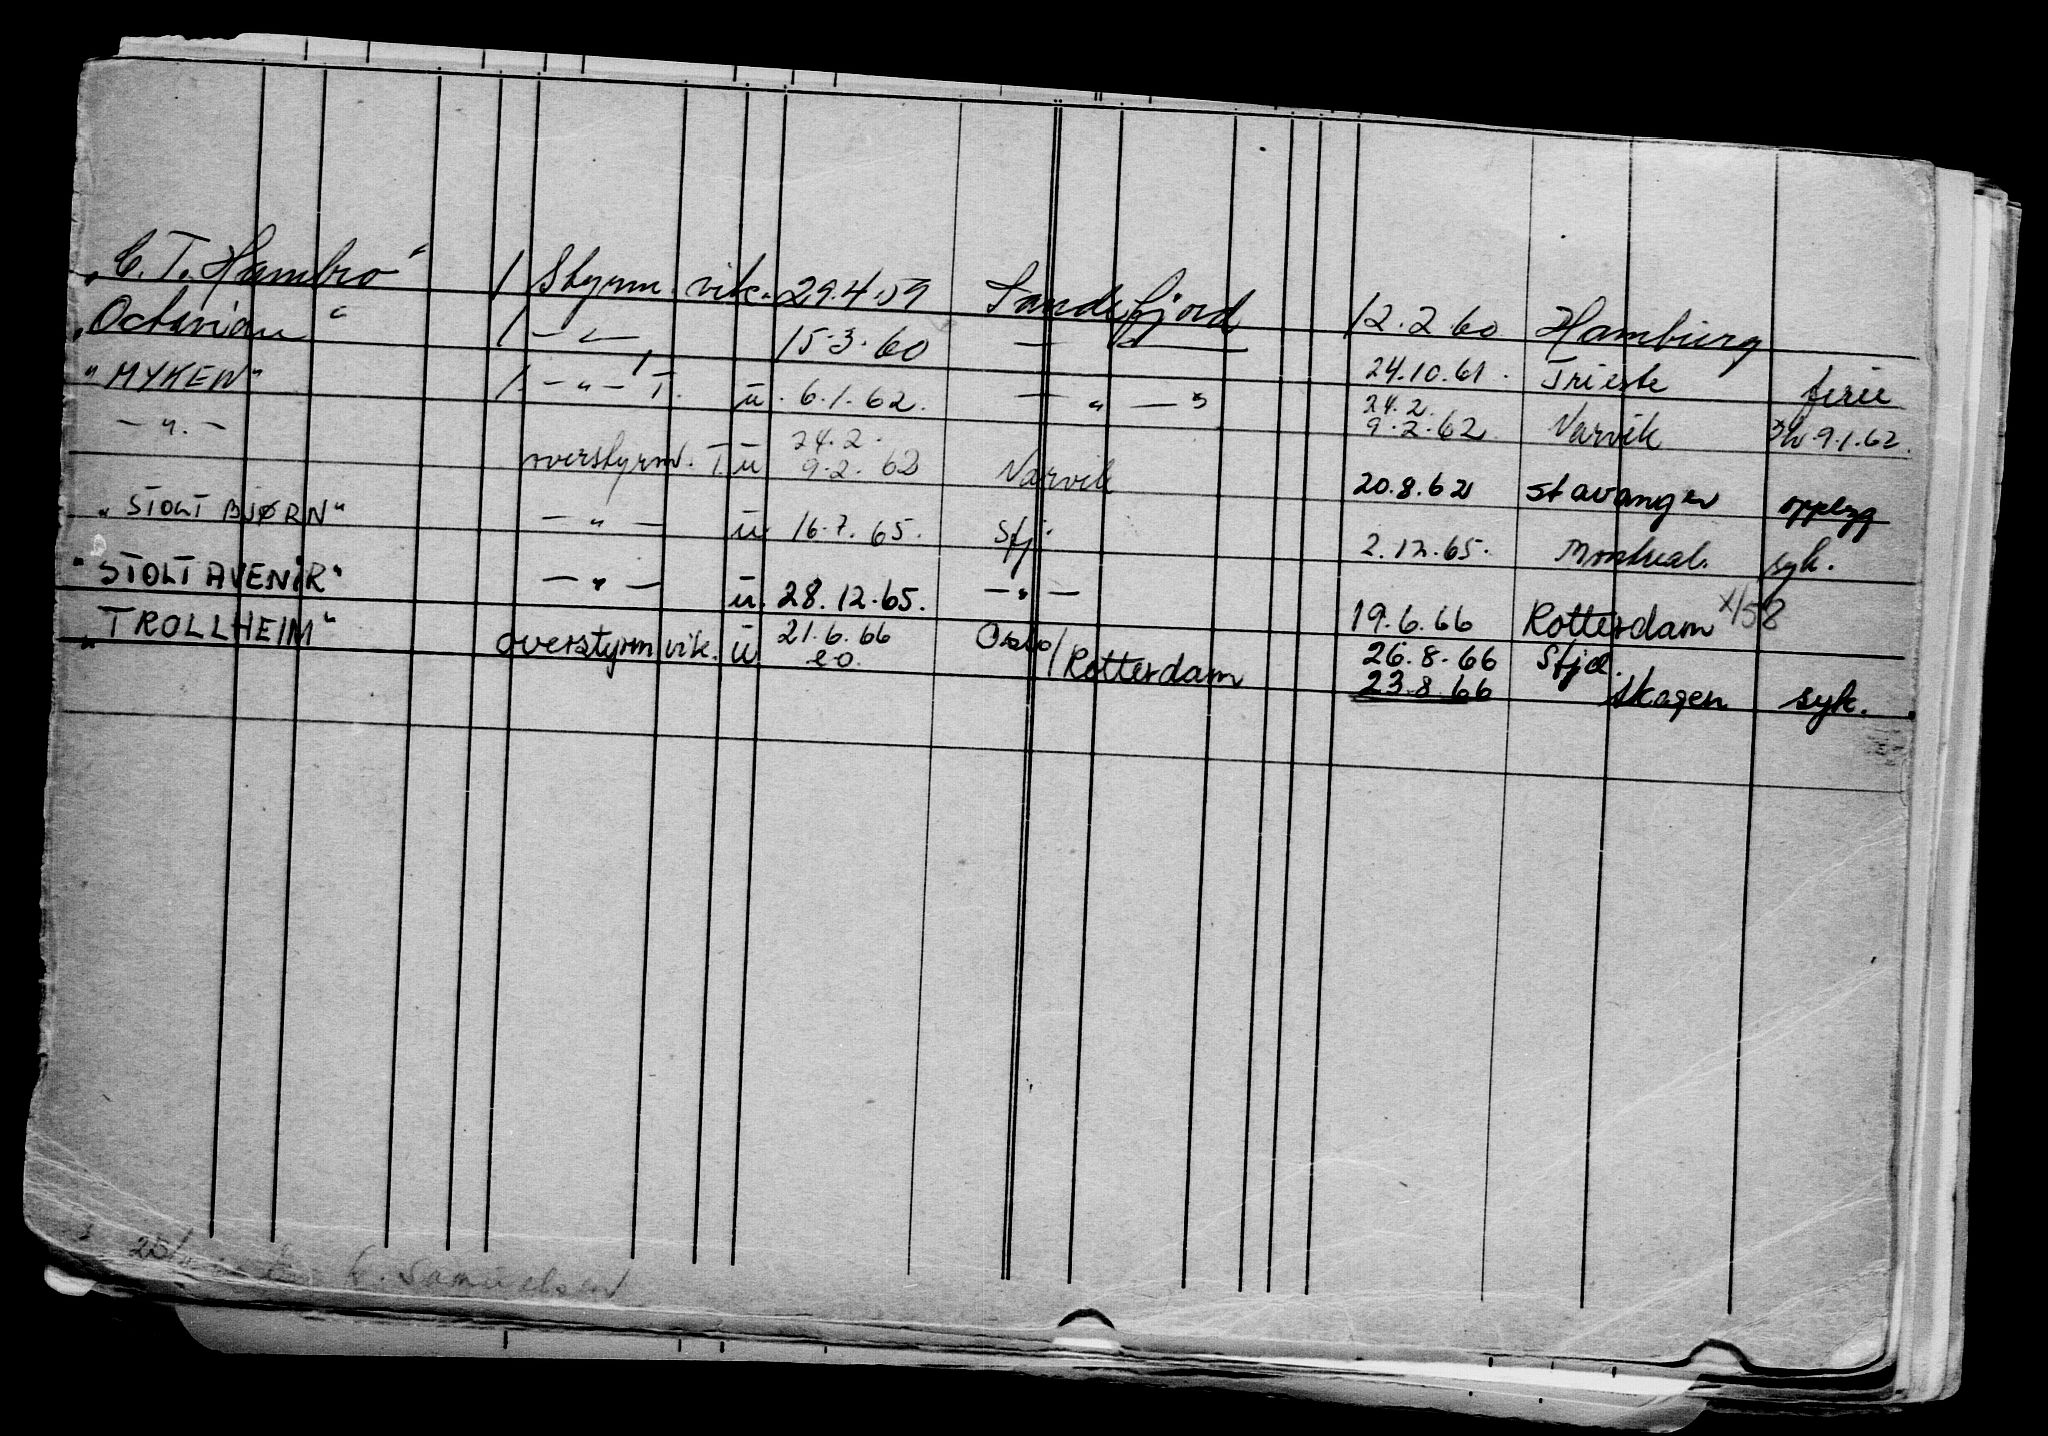 „C. T. Hambro“ 1 Styrm. vik. 29.4.59 Sandefjord 12.2.60 Hamburg
„Octavian“ 1 — „ — 15.3.60 — „ — 24.10.61. Trieste ferie
„MYKEN“ 1. — „ — T. ü. 6.1.62. — „ — 24.2. 9.2.62 Narvik 9.1.62.
— „ — overstyrm. T. ü 24.2. 9.2.62 Narvik 20.8.62 Stavanger opplegg
„STOLT BJØRN“ — „ — ü. 16.7.65. Sfj. 2.12.65. Montreal. syk.
"STOLT AVENIR" — „ — ü. 28.12.65. — „ — 19.6.66 Rotterdam X/58
„TROLLHEIM“ overstyrm vik. ü 21.6.66 20. Oslo/Rotterdam 26.8.66 Sfjd.
23.8.66 Skagen syk.
Samuelsen